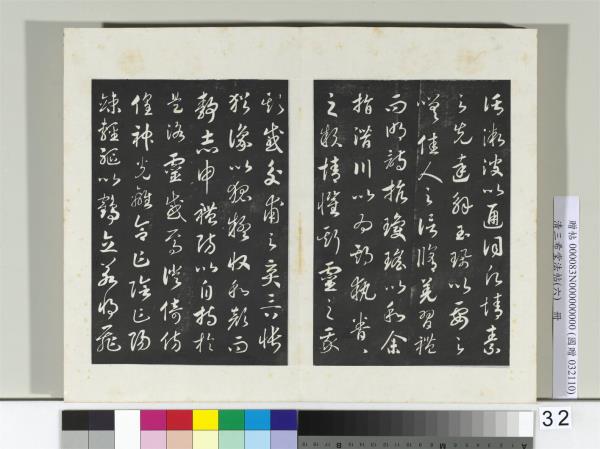 託微波以通詞願情素
之先達解玉珮以要之
嗟佳人之信脩羌習禮
而明詩抗瓊瑤以和余
指潛川以為期執眷〻
之款情懼斯靈之我
欺感交甫之棄言悵
猶豫以狐疑收和顏而
靜志申禮防以自持於
是洛靈感焉徙倚彷
徨神光離合乍陰乍陽
竦輕軀以鶴立若將飛
贈帖 000083N000000000 (國贈 032110)
清三希堂法帖(六) 冊
32